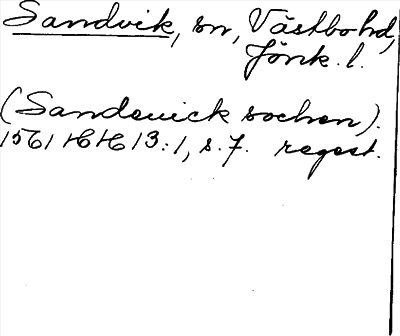 Sandvik, sn, Västbo hd,
Jönk. l.
(Sandeuick sochen).
1561 HH 13:1, s. 7. regest.